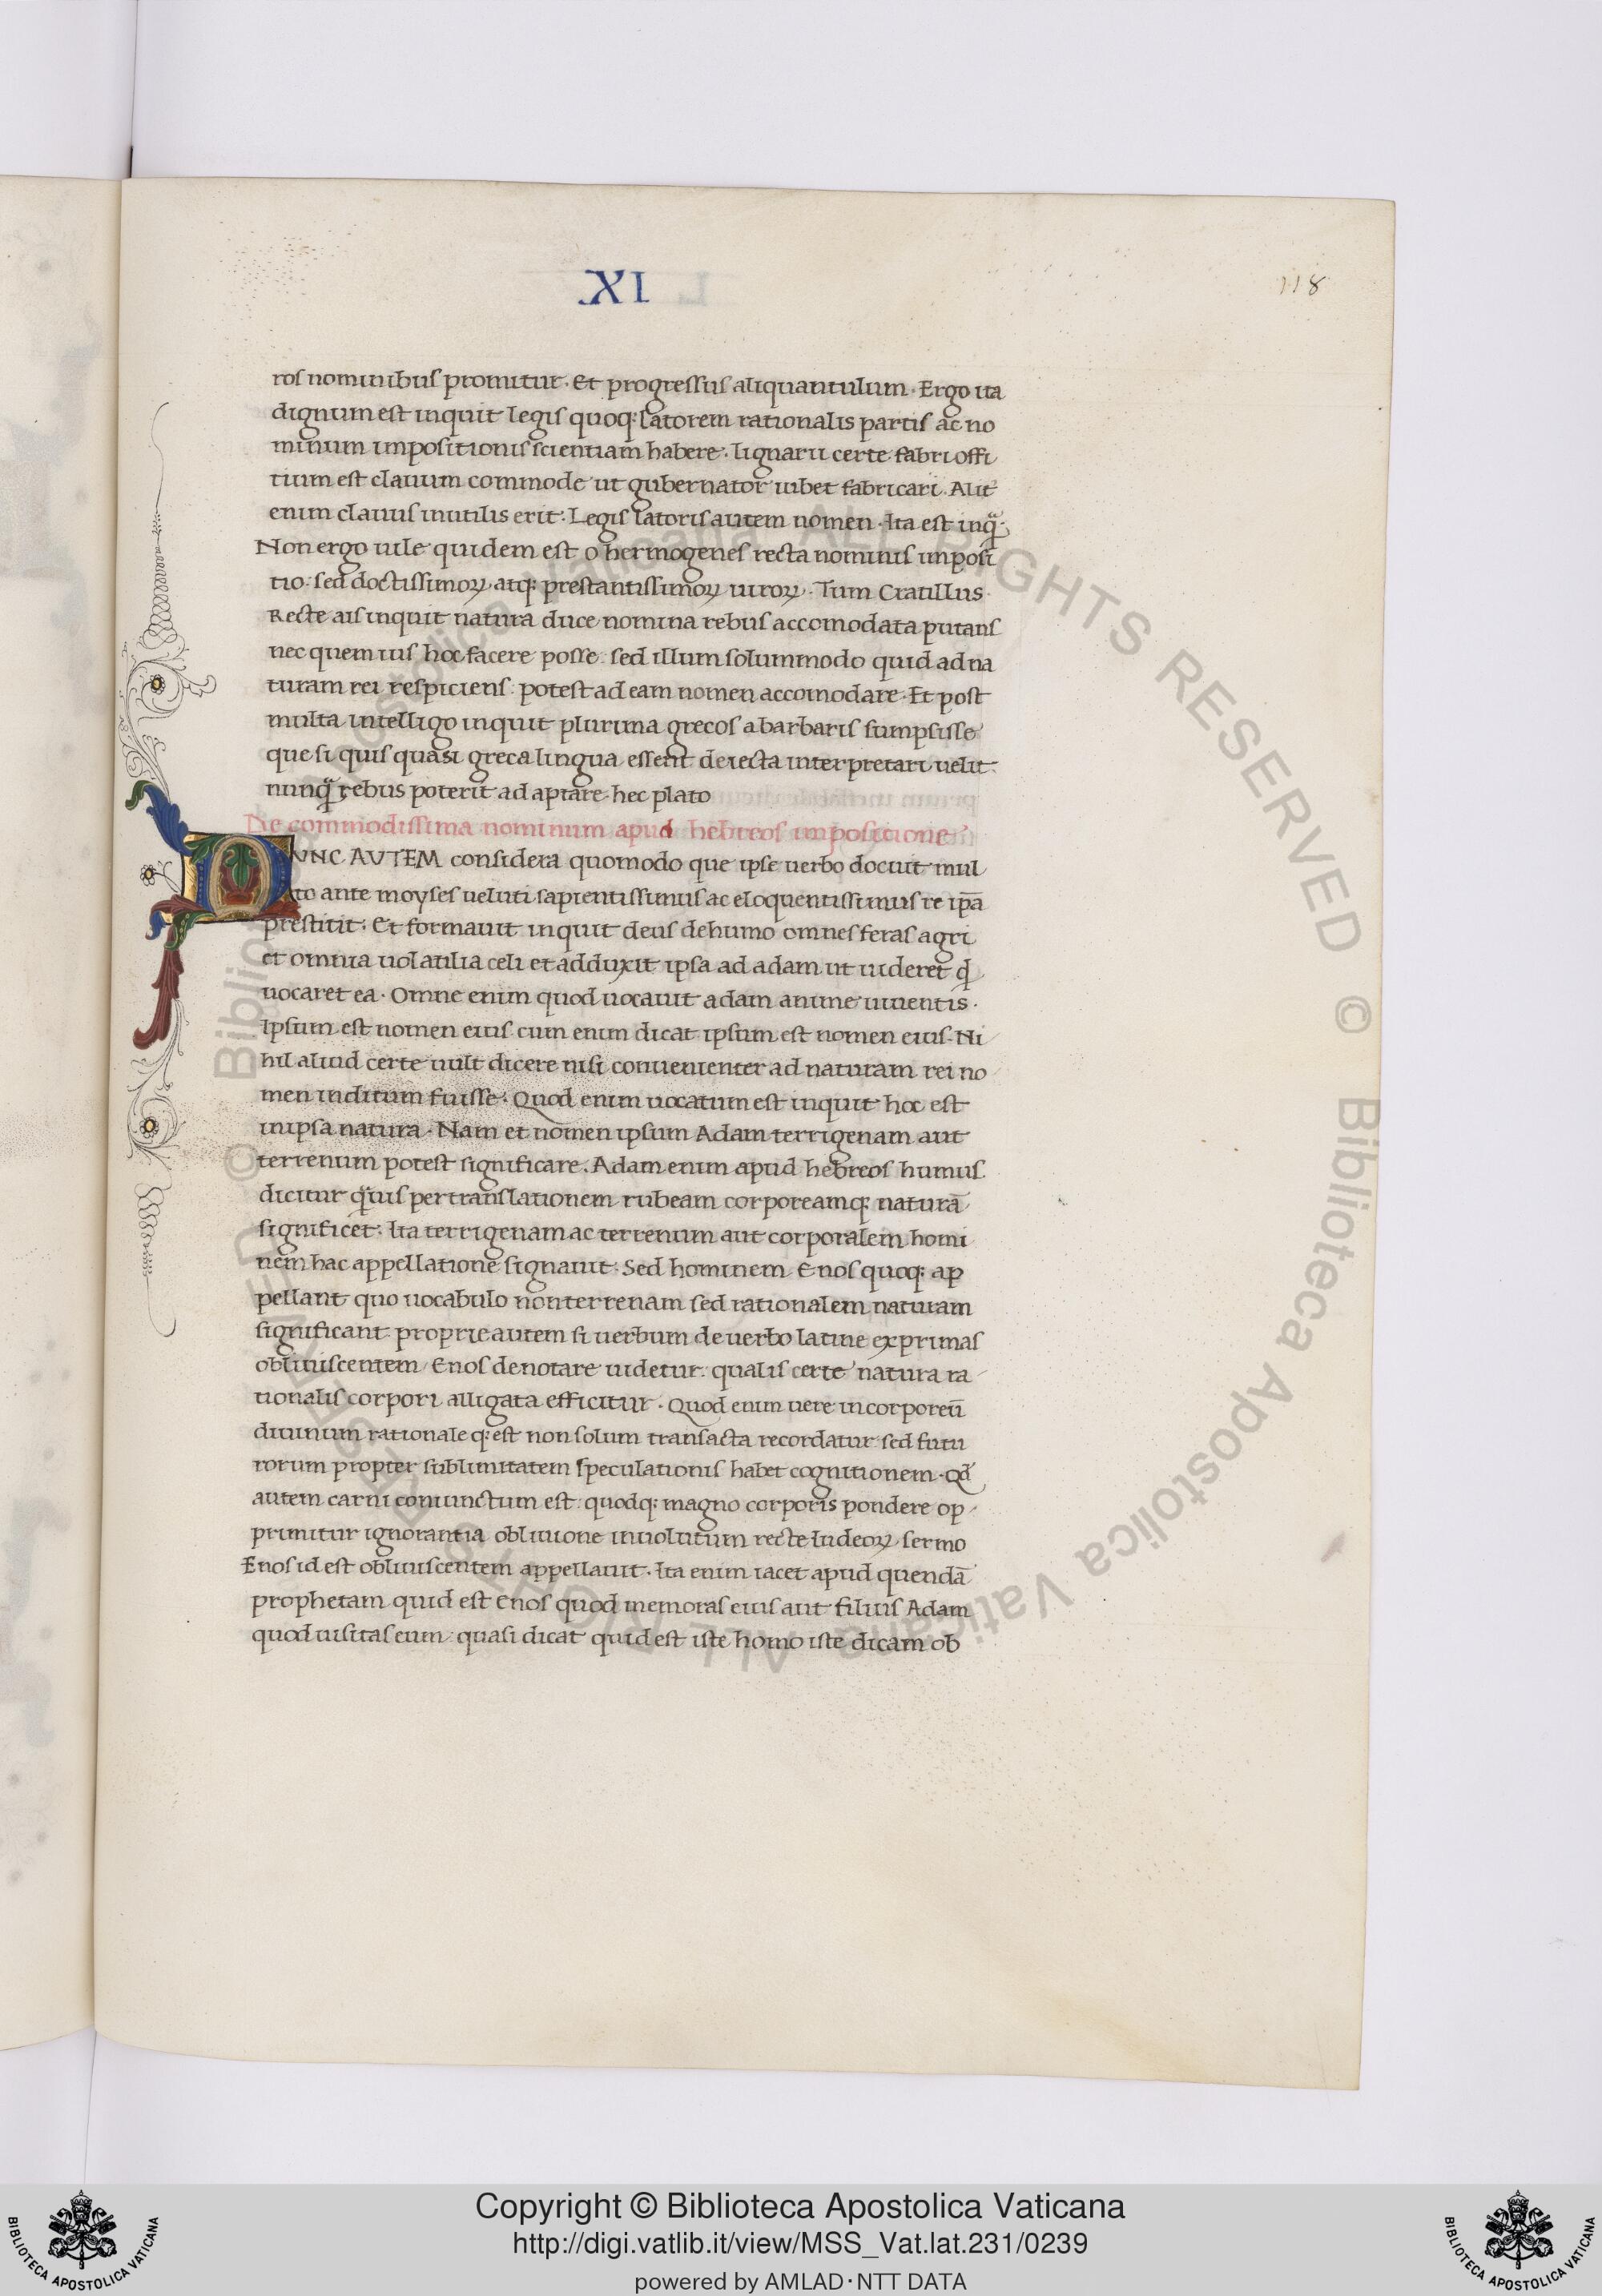 .XI
118
ros nominibus promitur. Et progressus aliquantulum. Ergo ita
dignum est inquit legis quoq; latorem rationalis partis ac no
minum impositionis scientiam habere. lignarii certe fabri offi
tium est clauum commode ut gubernator iubet fabricari. Alit̄
enim clauus inutilis erit. Legis latoris autem nomen. Ita est inq̃.
Non ergo uile quidem est o hermogenes recta nominis imposi
tio. sed doctissimoꝝ atq; prestantissimoꝝ uiroꝝ. Tum Cratillus
Recte ais inquit natura duce nomina rebus accomodata putans
nec quem uis hoc facere posse. sed illum solummodo quid ad na
turam rei respiciens: potest ad eam nomen accomodare. Et post
multa intelligo inquit plurima grecos a barbaris sumpsisse
que si quis quasi greca lingua essent deiecta interpretari uelit.
nunq̃ rebus poterit ad aptare. hec plato
De commodissima nominum apud hebreos impositione
NUNC AUTEM considera quomodo que ipse uerbo docuit mul
to ante moyses ueluti sapientissimus ac eloquentissimus re ip̄a
prestitit. Et formauit inquit deus de humo omnes feras agri
et omnia uolatilia celi et adduxit ipsa ad adam ut uideret qd̄
uocaret ea. Omne enim quod uocauit adam anime uiuentis.
Ipsum est nomen eius cum enim dicat ipsum est nomen eius. Ni
hil aliud certe uult dicere nisi conuenienter ad naturam rei no
men inditum fuisse. Quod enim uocatum est inquit hoc est
in ipsa natura. Nam et nomen ipsum Adam terrigenam aut
terrenum potest significare. Adam enim apud hebreos humus
dicitur q̃uis per translationem rubeam corpoream q; naturā
significet. Ita terrigenam ac terrenum aut corporalem homi
nem hac appellatione signauit. Sed hominem Enos quoq; ap
pellant quo uocabulo non terrenam sed rationalem naturam
significant proprie autem si uerbum de uerbo latine exprimas
obliuiscentem Enos denotare uidetur. qualis certe natura ra
tionalis corpori alligata efficitur. Quod enim uere incorporeū
diuinum rationale q; est non solum transacta recordatur sed futu
rorum propter sublimitatem speculationis habet cognitionem. Qd̄
autem carni coniunctum est. quodq; magno corporis pondere op
primitur ignorantia obliuione inuolutum recte Iudeoꝝ sermo
Enos id est obliuiscentem appellauit. Ita enim iacet apud quendā
prophetam quid est Enos quod memoras eius aut filius Adam
quod uisitas eum. quasi dicat quid est iste homo iste dicam ob
© Biblioteca Apostolica Vaticana ALL RIGHTS RESERVED
© Biblioteca Apostolica Vaticana ALL RIGHTS RESERVED
Copyright © Biblioteca Apostolica Vaticana
http://digi.vatlib.it/view/MSS_Vat.lat.231/0239
powered by AMLAD·NTT DATA
BIBLIOTECA APOSTOLICA VATICANA
BIBLIOTECA APOSTOLICA VATICANA